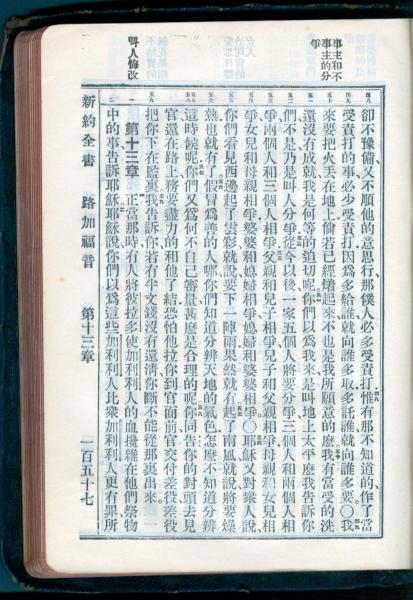 事主和不
事主的分
爭
呌人悔改
卻不豫備又不順他的意思行那僕人必多受責打惟有那不知道的作了當
受責打的事必少受責打因爲多給誰就向誰多取多託誰就向誰多要〇我
來要把火丟在地上倘若已經燃起來不也是我所願意的麽我有當受的洗
還沒有成就我是何等的迫切呢你們以爲我來是叫地上太平麽我告訴你
們不是乃是叫人分爭從今以後一家五個人將要分爭三個人和兩個人相
爭兩個人和三個人相爭父親和兒子相爭兒子和父親相爭母親和女兒相
爭女兒和母親相爭婆婆和媳婦相爭媳婦和婆婆相爭〇耶穌又對衆人說
你們看見西邊起了雲彩就說要下一陣雨果然就有起了南風就說將要燥
熱也就有了假冒爲善的人哪你們知道分辨天地的氣色怎麽不知道分辨
這時候呢你們又爲何不自己審量甚麽是合理的呢你同告你的對頭去見
官還在路上務要盡力的和他了結恐怕他拉你到官面前官交付差役差役
把你下在監裏我告訴你若有半文錢沒有還清你斷不能從那裏出來
第十三章 正當那時有人將彼拉多使加利利人的血攙雜在他們祭物
中的事告訴耶穌耶穌說你們以爲這些加利利人比衆加利利人更有罪所
新約全書 路加福音 第十三章 一百五十七